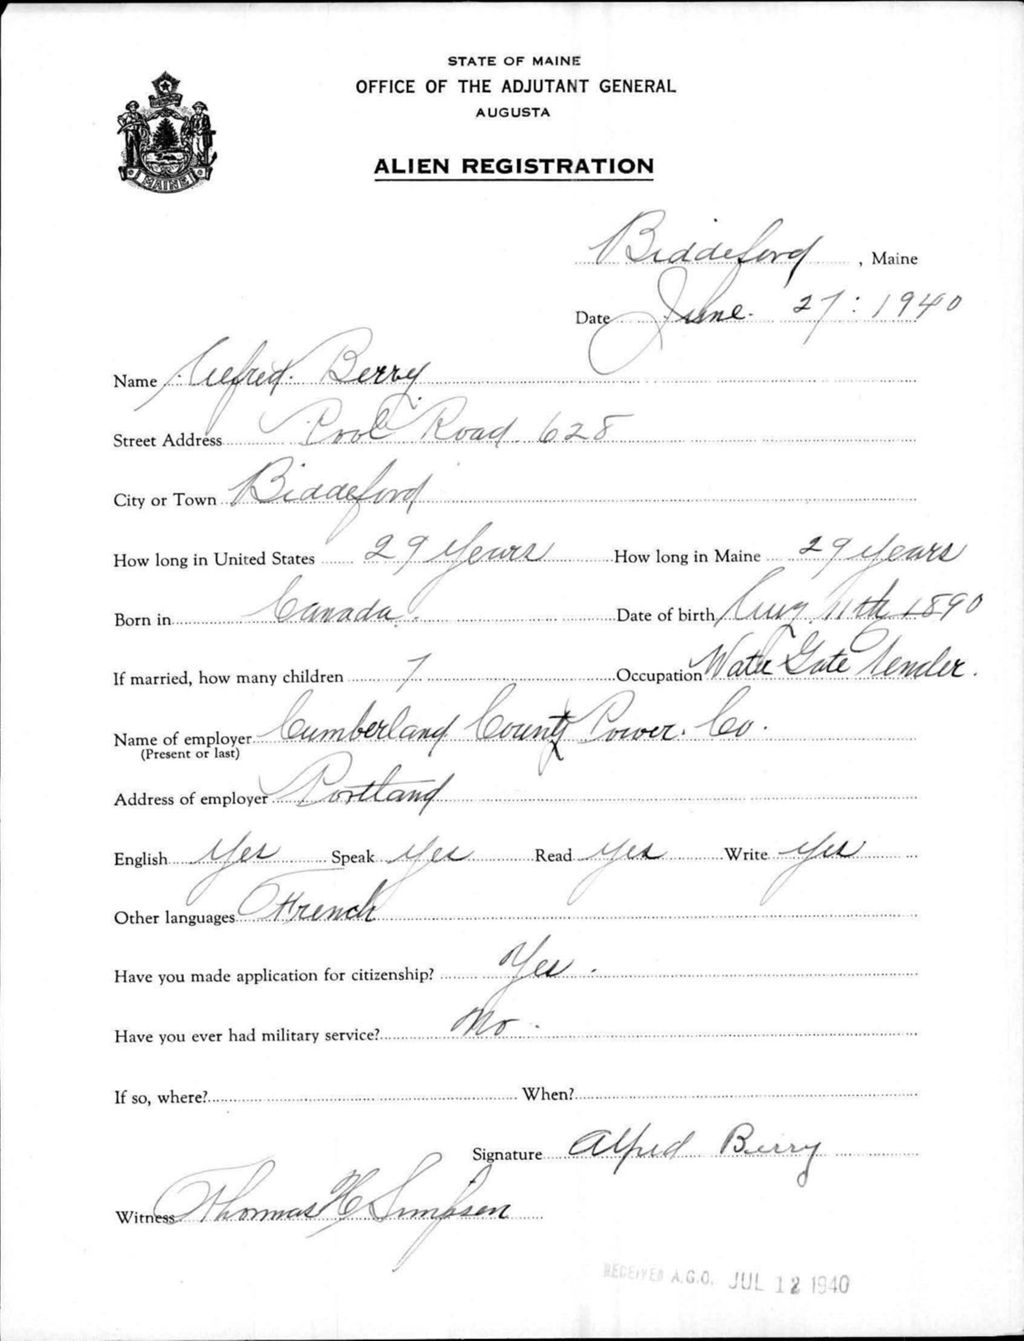 STATE OF MAINE
OFFICE OF THE ADJUTANT GENERAL
AUGUSTA
ALIEN REGISTRATION
MAINE
Biddeford, Maine
Date June 27: 1940
Name Alfred. Berry
Street Address Pool Road 628
City or Town Biddeford
How long in United States 29 years How long in Maine 29 years
Born in Canada. Date of birth Aug 11th 1890
If married, how many children 7 Occupation Water Gate Tender.
Name of employer Cumberland County Power. Co.
(Present or last)
Address of employer Portland
English Yes Speak Yes Read yes Write yes
Other languages French
Have you made application for citizenship? Yes.
Have you ever had military service? No.
If so, where? When?
Signature Alfred Berry
Witness Thomas H Simpson
RECEIVED A.G.O. JUL 12 1940